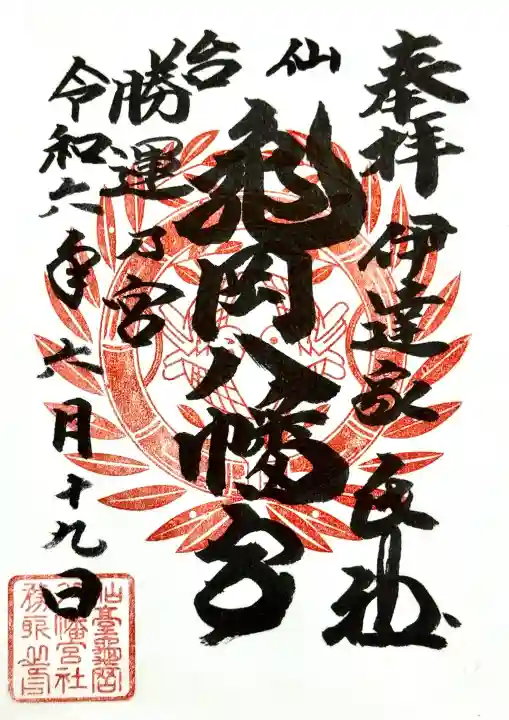 奉拝
伊達家
氏神
仙台
亀岡八幡宮
勝運乃宮
令和六年六月十九日
仙臺龜岡
八幡宮社
務所之